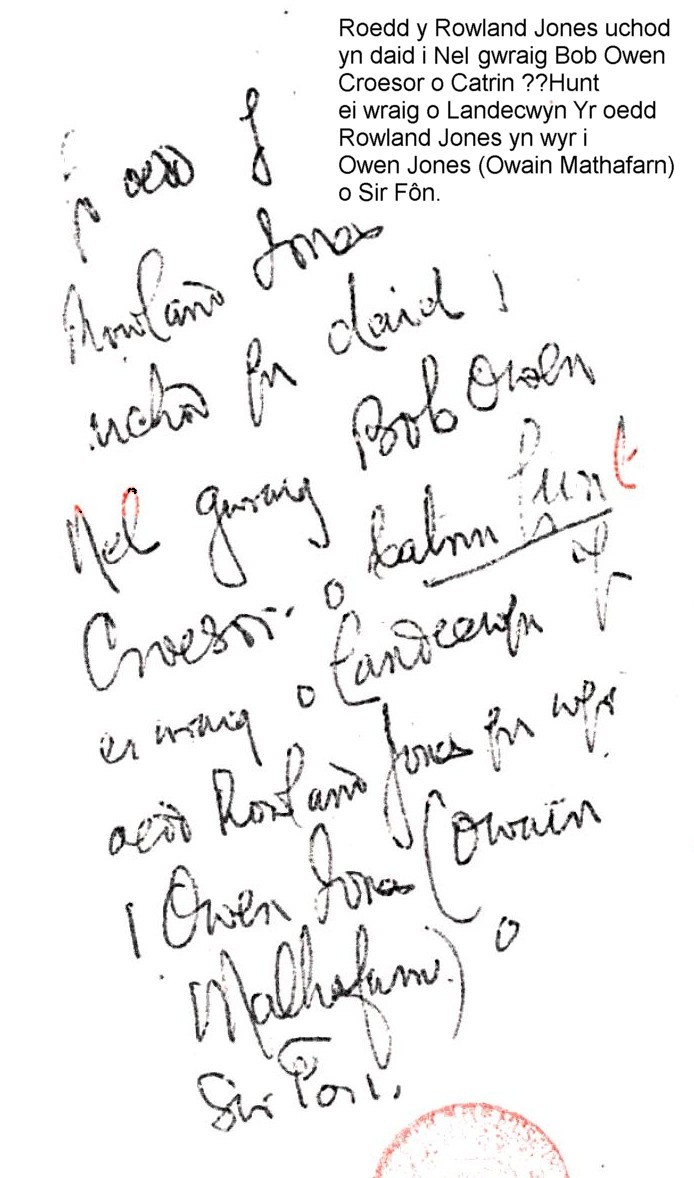 Roedd y Rowland Jones uchod
yn daid i Nel gwraig Bob Owen
Croesor o Catrin ??Hunt
ei wraig o Landecwyn Yr oedd
Rowland Jones yn wyr i
Owen Jones (Owain Mathafarn)
o Sir Fôn.
Yr oedd y
Rowland Jones
uchod yn daid i
Nel gwraig Bob Owen
Croesor o
ei wraig o Landecwyn Yr
oedd Rowland Jones yn wyr
i Owen Jones (Owain
Mathafarn) o
Sir Fôn.